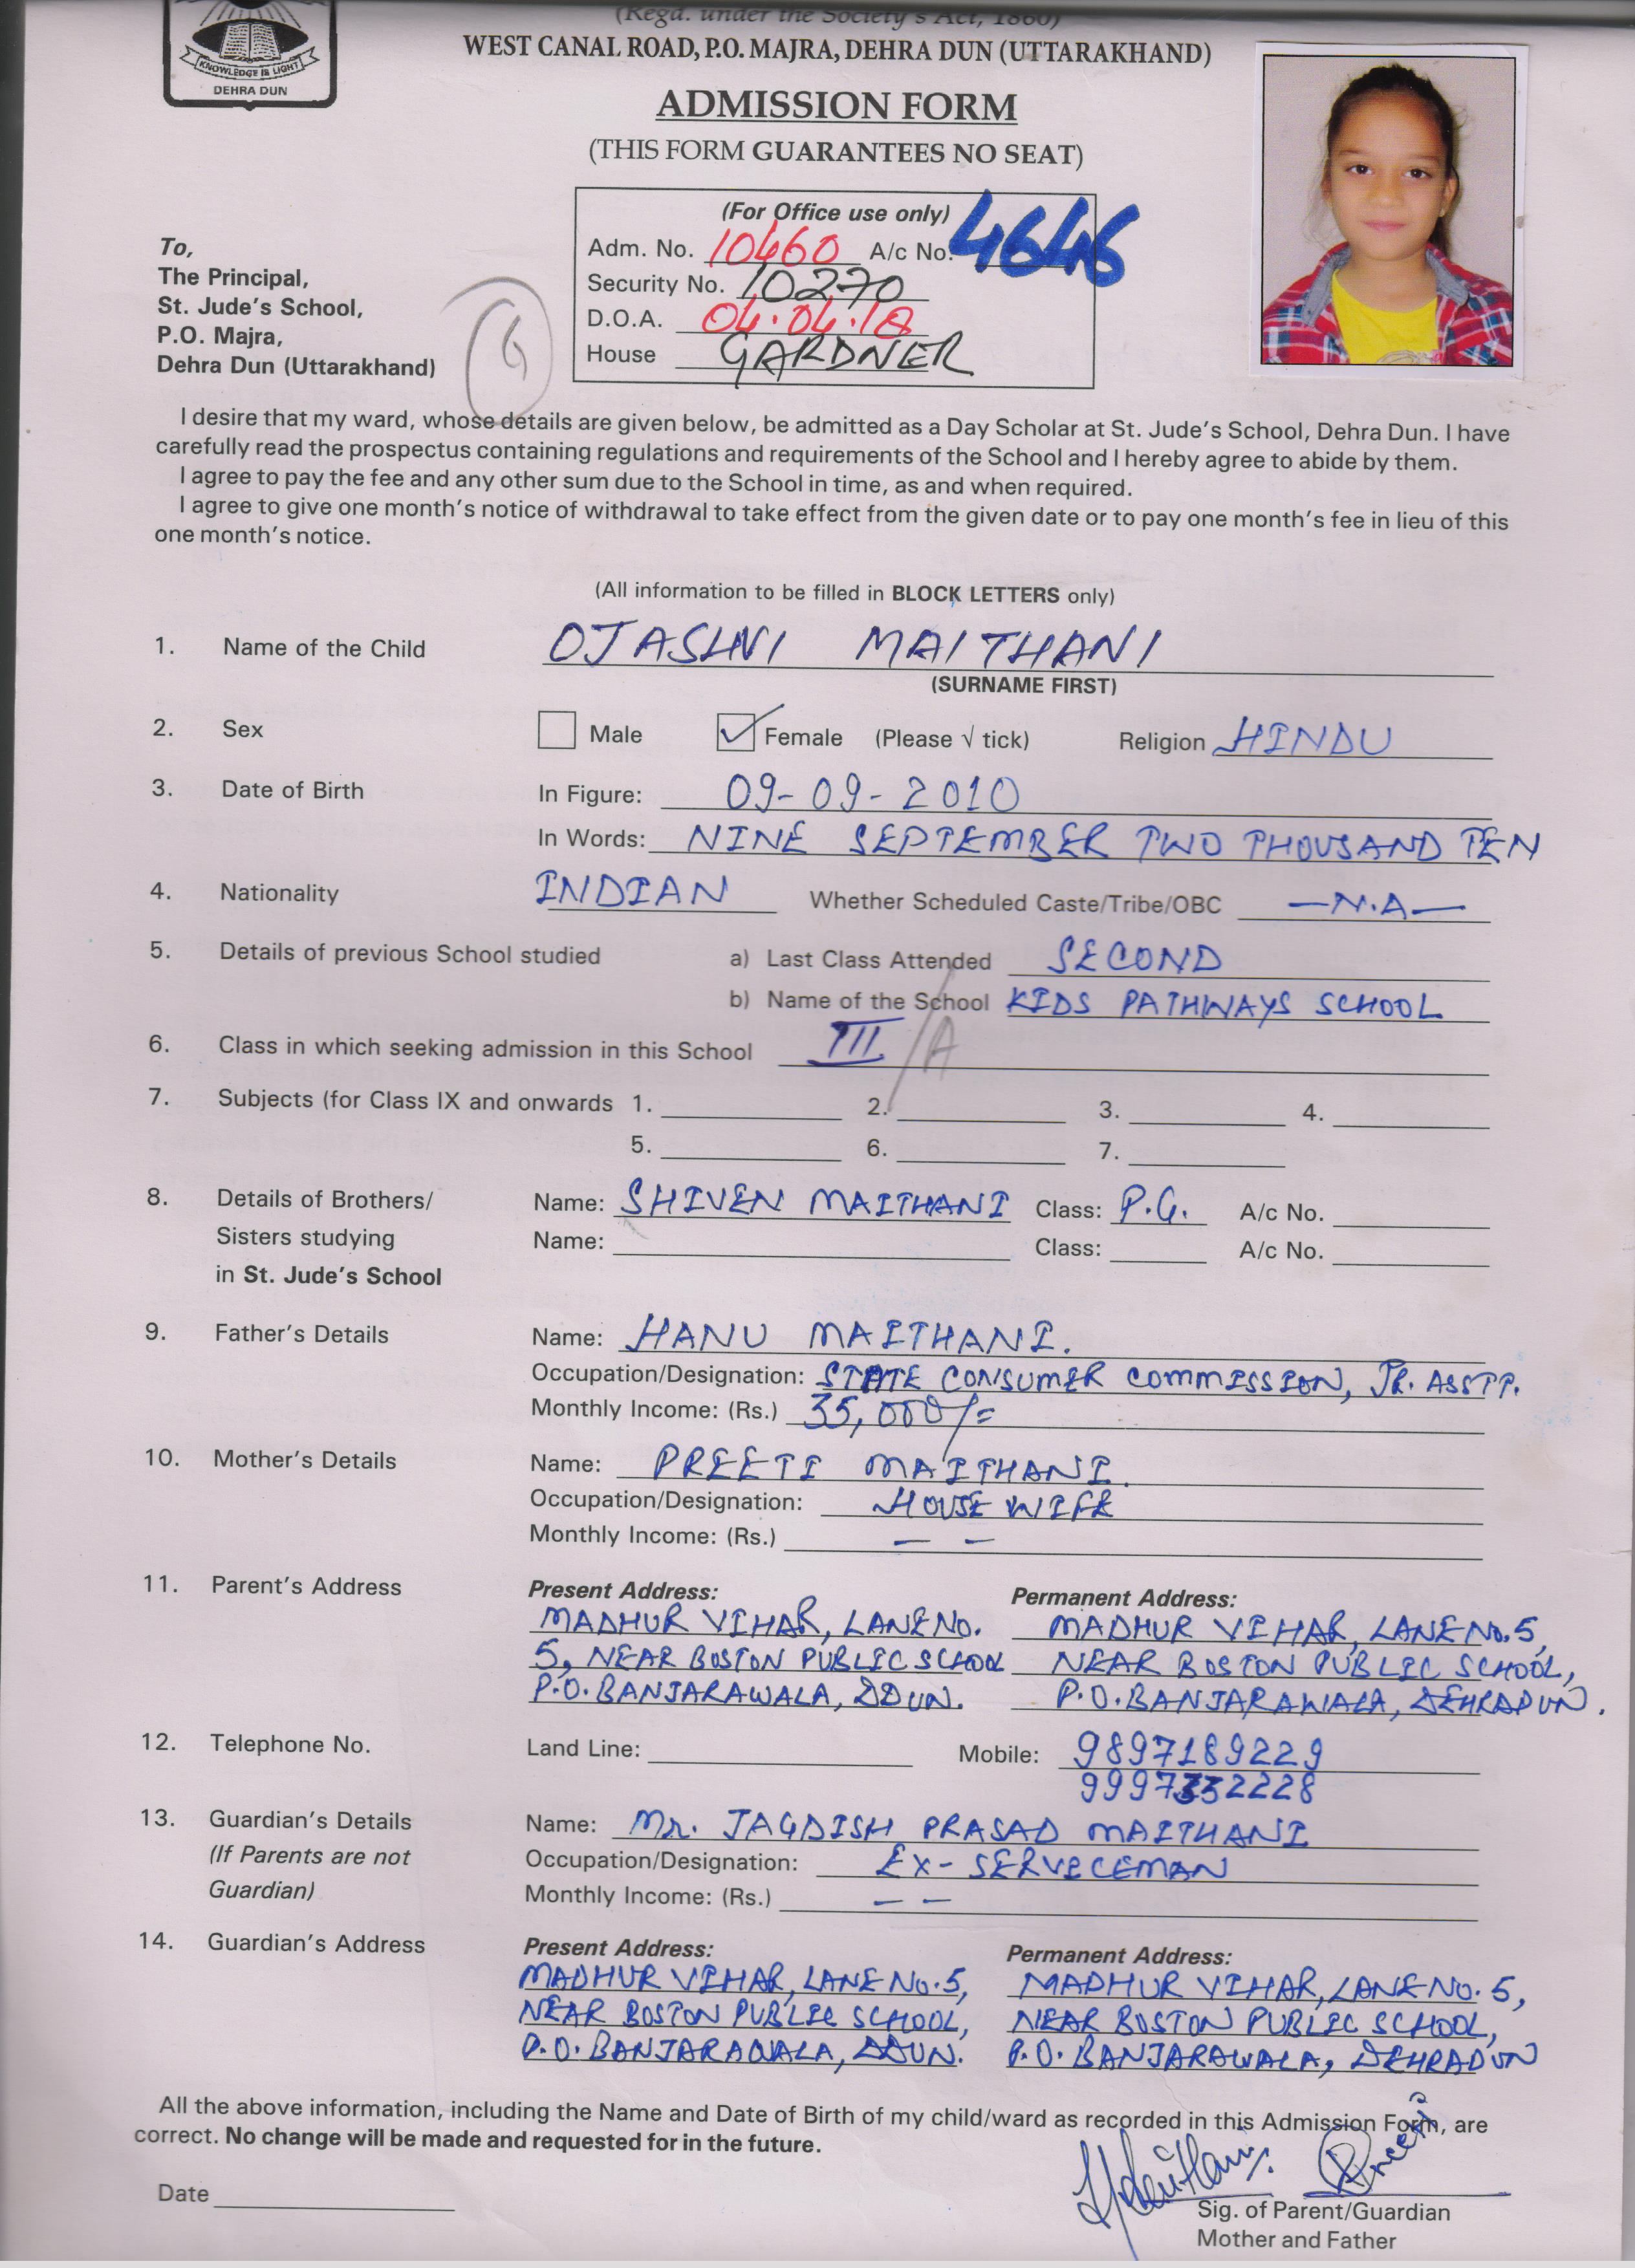 (Regd. under the Society's Act, 1860)
WEST CANAL ROAD, P.O. MAJRA, DEHRA DUN (UTTARAKHAND)
KNOWLEDGE IS LIGHT
DEHRA DUN
ADMISSION FORM
(THIS FORM GUARANTEES NO SEAT)
(For Office use only)
Adm. No. 10460 A/c No. 4646
Security No. 10270
D.O.A. 04.04.18
House GARDNER
To,
The Principal,
St. Jude's School,
P.O. Majra,
Dehra Dun (Uttarakhand)
I desire that my ward, whose details are given below, be admitted as a Day Scholar at St. Jude's School, Dehra Dun. I have
carefully read the prospectus containing regulations and requirements of the School and I hereby agree to abide by them.
I agree to pay the fee and any other sum due to the School in time, as and when required.
I agree to give one month's notice of withdrawal to take effect from the given date or to pay one month's fee in lieu of this
one month's notice.
(All information to be filled in BLOCK LETTERS only)
1. Name of the Child OJASHVI MAITHANI
(SURNAME FIRST)
2. Sex Male Female (Please √ tick) Religion HINDU
3. Date of Birth In Figure: 09-09-2010
In Words: NINE SEPTEMBER TWO THOUSAND TEN
4. Nationality INDIAN Whether Scheduled Caste/Tribe/OBC —N.A—
5. Details of previous School studied a) Last Class Attended SECOND
b) Name of the School KIDS PATHWAYS SCHOOL
6. Class in which seeking admission in this School III /A
7. Subjects (for Class IX and onwards 1. 2. 3. 4.
5. 6. 7.
8. Details of Brothers/ Name: SHIVEN MAITHANI Class: P.G. A/c No.
Sisters studying Name: Class: A/c No.
in St. Jude's School
9. Father's Details Name: HANU MAITHANI.
Occupation/Designation: STATE CONSUMER COMMISSION, JR. ASSTT.
Monthly Income: (Rs.) 35,000/=
10. Mother's Details Name: PREETI MAITHANI.
Occupation/Designation: HOUSE WIFE
Monthly Income: (Rs.) — —
11. Parent's Address Present Address: Permanent Address:
MADHUR VIHAR, LANE NO. MADHUR VIHAR, LANE NO. 5,
5, NEAR BOSTON PUBLIC SCHOOL NEAR BOSTON PUBLIC SCHOOL,
P.O. BANJARAWALA, DDUN. P.O. BANJARAWALA, DEHRADUN.
12. Telephone No. Land Line: Mobile: 9897189229
9997332228
13. Guardian's Details Name: Mr. JAGDISH PRASAD MAITHANI
(If Parents are not Occupation/Designation: EX-SERVICEMAN
Guardian) Monthly Income: (Rs.) — —
14. Guardian's Address Present Address: Permanent Address:
MADHUR VIHAR, LANE NO. 5, MADHUR VIHAR, LANE NO. 5,
NEAR BOSTON PUBLIC SCHOOL, NEAR BOSTON PUBLIC SCHOOL,
P.O. BANJARAWALA, DDUN. P.O. BANJARAWALA, DEHRADUN
All the above information, including the Name and Date of Birth of my child/ward as recorded in this Admission Form, are
correct. No change will be made and requested for in the future.
Date
Sig. of Parent/Guardian
Mother and Father